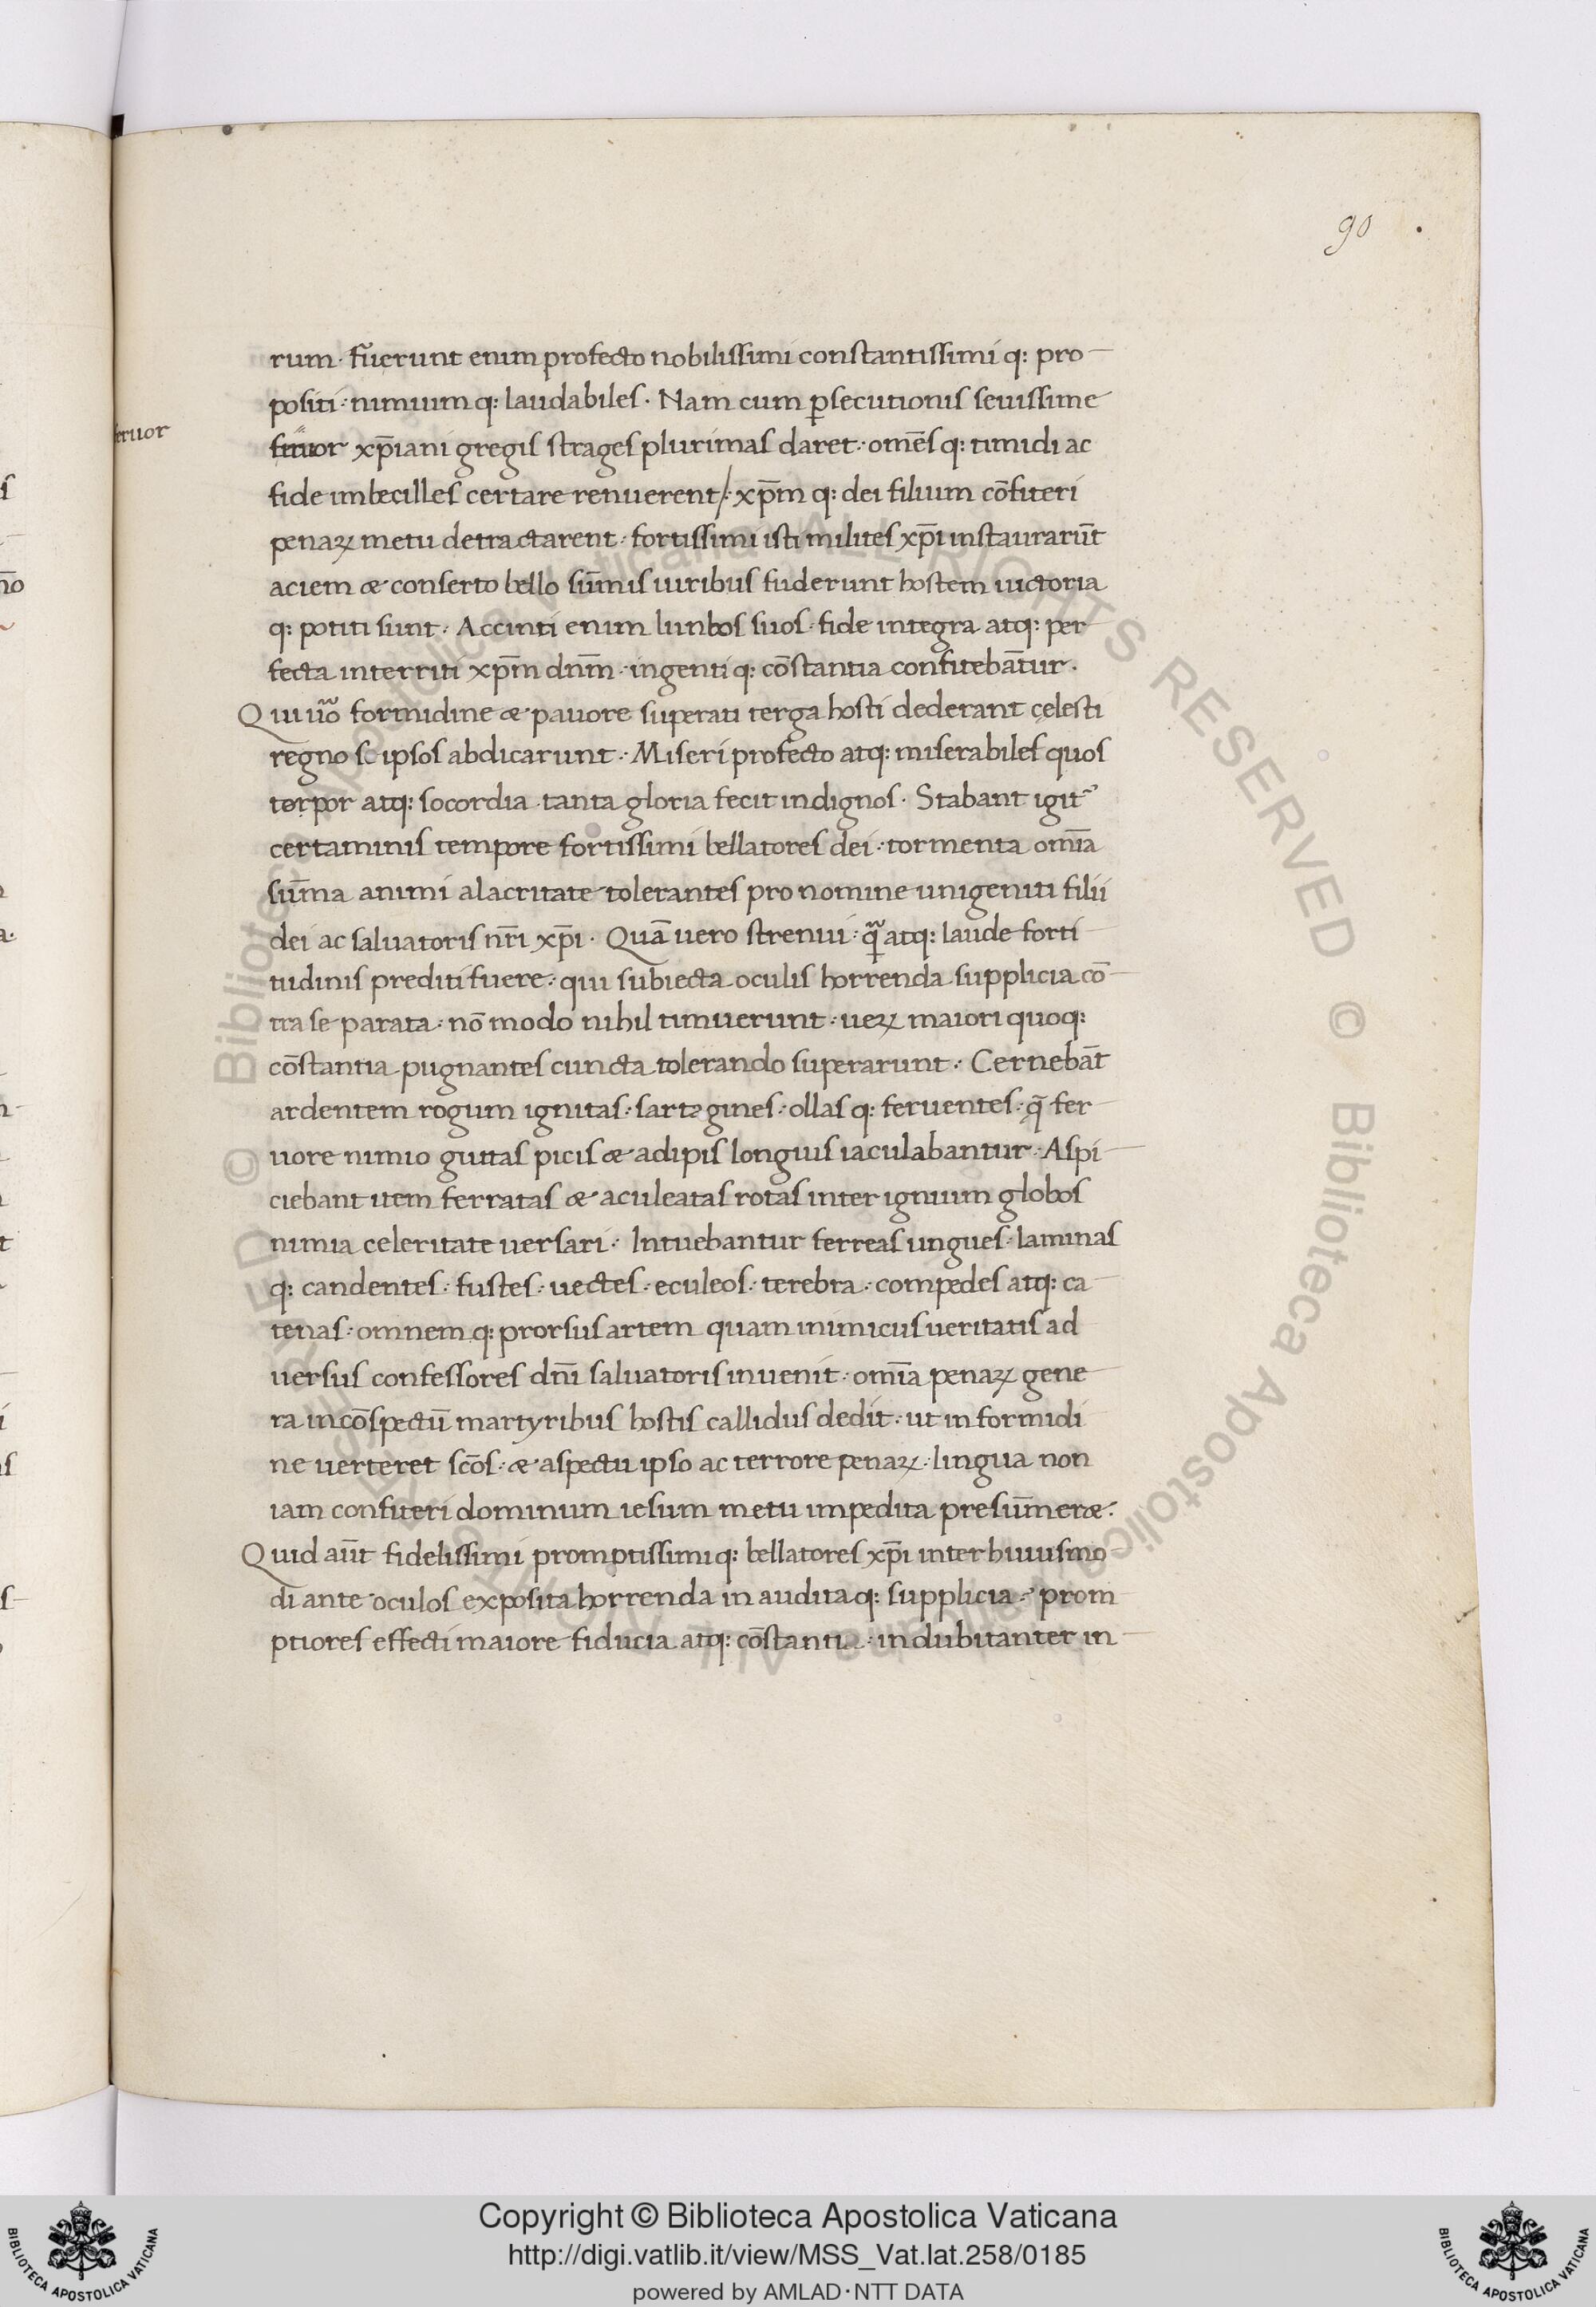 90
rum· fuerunt enim profecto nobilissimi constantissimi q: pro
positi · nimium q: laudabiles · Nam cum ꝑsecutionis seuissime
eruor
feruor xp̄iani gregis strages plurimas daret · omēs q: timidi ac
fide imbecilles certare renuerent/· xp̄m q: dei filium cōfiteri
penaꝝ metu detractarent · fortissimi isti milites xp̄i instaurarūt
aciem & conserto bello sūmis uiribus fuderunt hostem uictoria
q: potiti sunt · Accinti enim lunbos suos · fide integra atq: per
fecta interriti xp̄m dn̄m · ingenti q: cōstantia confitebātur ·
Qui ūo formidine & pauore superati terga hosti dederant cęlesti
regno se ipsos abdicarunt · Miseri profecto atq: miserabiles quos
torpor atq: socordia tanta gloria fecit indignos · Stabant igit᷑
certaminis tempore fortissimi bellatores dei · tormenta omīa
sūma animi alacritate tolerantes pro nomine unigeniti filii
dei ac saluatoris nr̄i xp̄i · Quā uero strenui · q̄ atq: laude forti
tudinis prediti fuere · qui subiecta oculis horrenda supplicia cō
tra se parata · nō modo nihil timuerunt · ueꝝ maiori quoq:
cōstantia pugnantes cuncta tolerando superarunt · Cernebāt
ardentem rogum ignitas · sartagines · ollas q: feruentes · q̄ fer
uore nimio guttas picis & adipis longius iaculabantur · Aspi
ciebant item ferratas & aculeatas rotas inter ignium globos
nimia celeritate uersari · Intuebantur ferreas ungues · laminas
q: candentes · fustes · uectes · eculeos · terebra · compedes atq: ca
tenas · omnem q: prorsus artem quam inimicus ueritatis ad
uersus confessores dn̄i saluatoris inuenit · omīa penaꝝ gene
ra in cōspectū martyribus hostis callidus dedit · ut in formidi
ne uerteret scōs · & aspectu ipso ac terrore penaꝝ · lingua non
iam confiteri dominum iesum metu impedita presūmer& ·
Quid aūt fidelissimi promptissimi q: bellatores xp̄i inter huiusmo
di ante oculos exposita horrenda in audita q: supplicia · prom
ptiores effecti maiore fiducia atq: cōstanti · indubitanter in
Copyright © Biblioteca Apostolica Vaticana
http://digi.vatlib.it/view/MSS_Vat.lat.258/0185
powered by AMLAD · NTT DATA